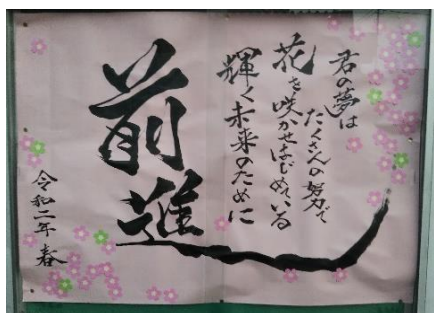 君の夢は
たくさんの努力で
花を咲かせはじめている
輝く未来のために
前進
令和二年 春